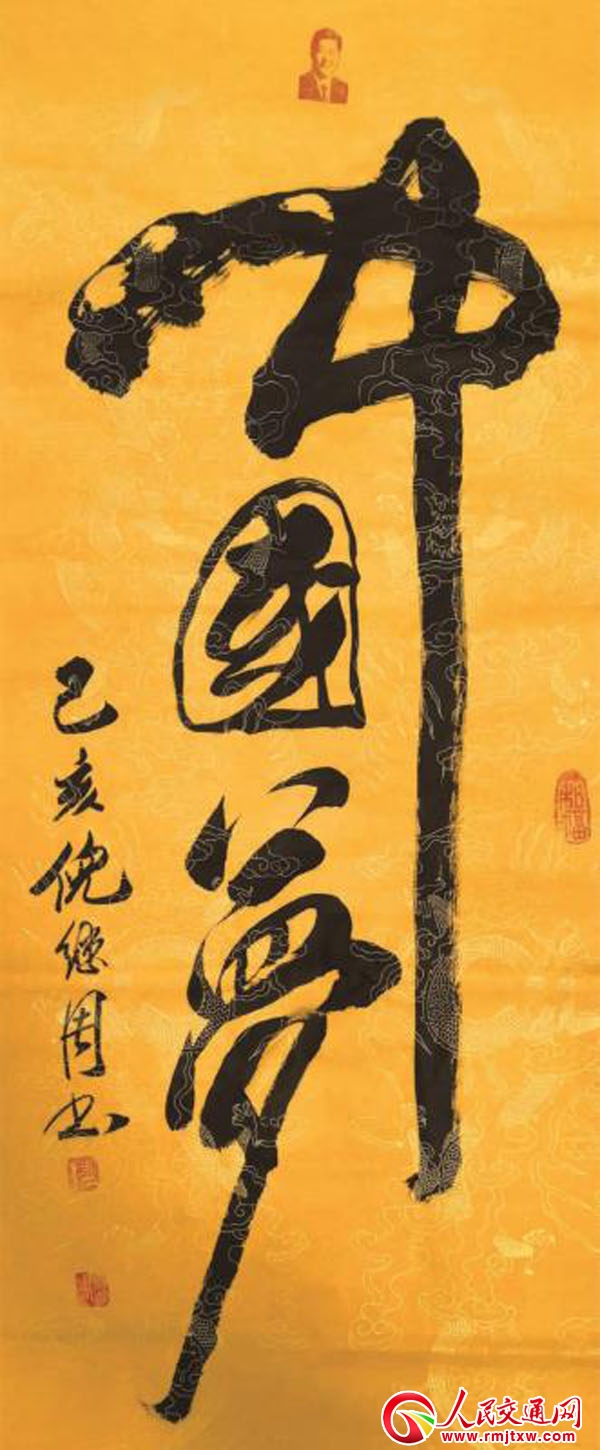 中國夢
己亥倪继周书
人民交通网
www.rmjtxw.com